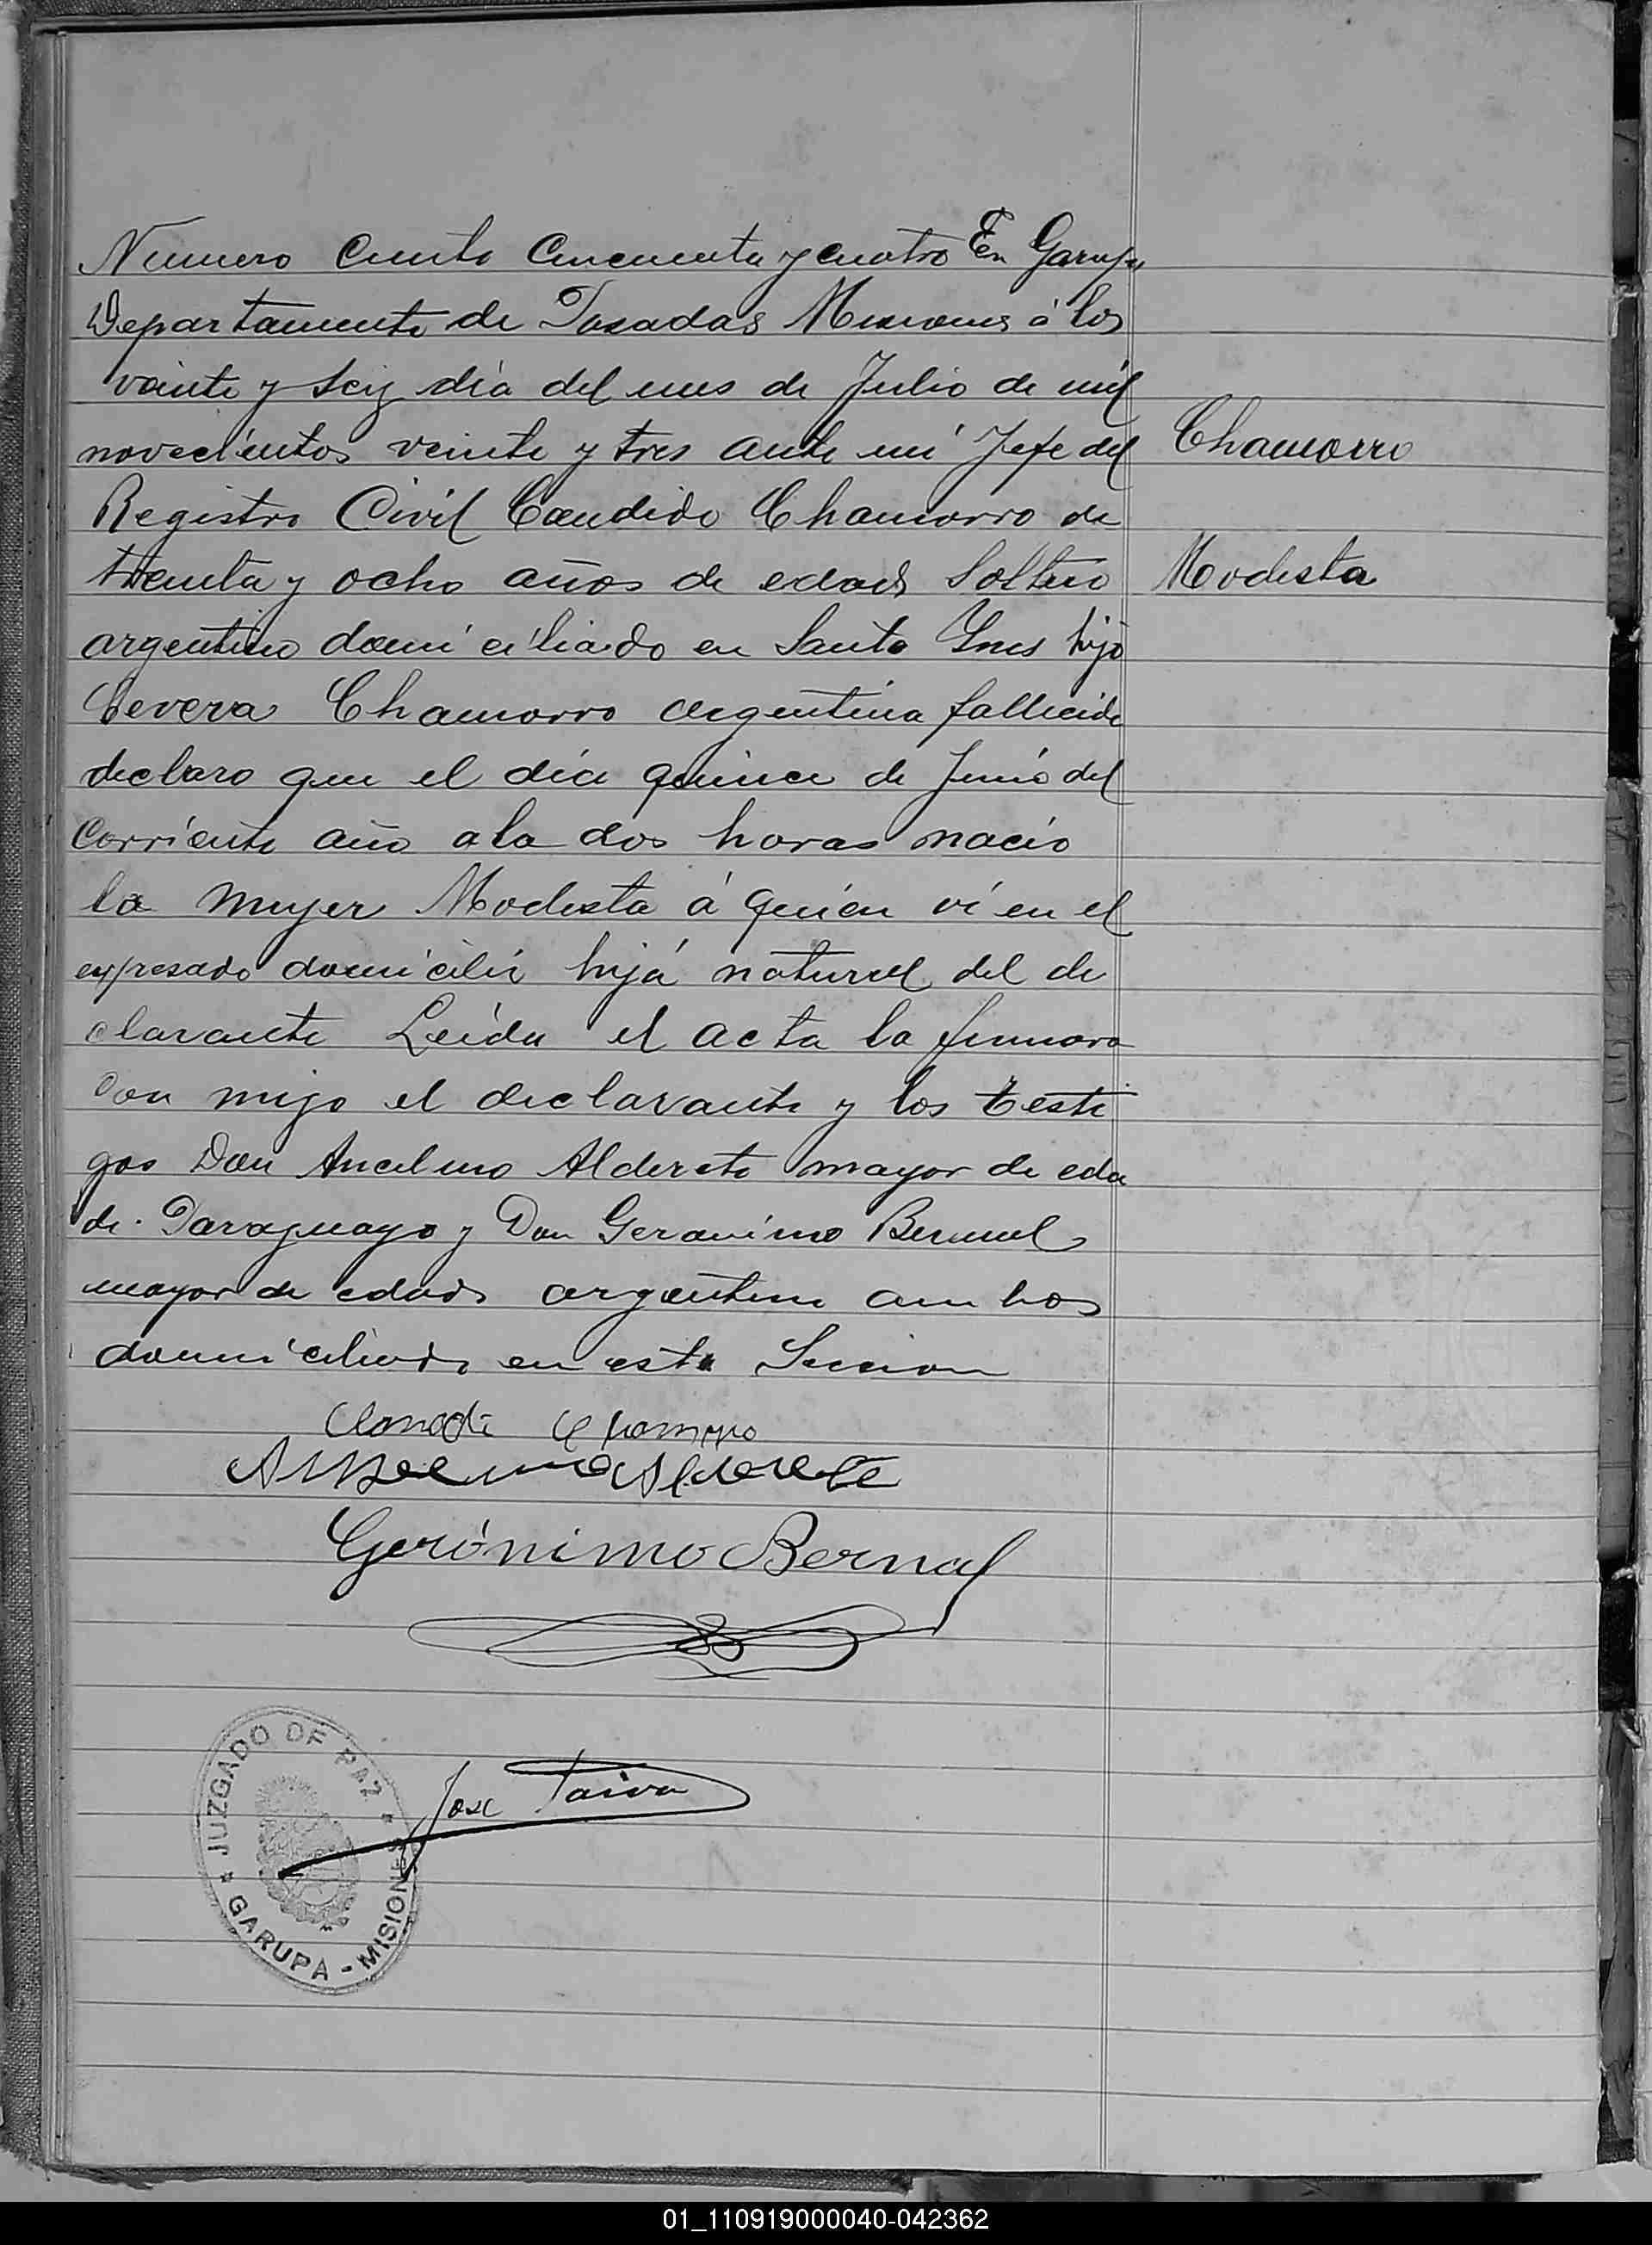 Numero Ciento Cincuenta y cuatro En Garupa
Departamente de Posadas Misiones á los
veinte y seiz día del mes de Julio de mil
novecientos veinte y tres ante mí Jefe del
Chamorro
Registro Civil Candido Chamorro de
treinta y ocho años de edad Soltero
Modesta
argentino domiciliado en Santa Ynes hijo
Severa Chamorro argentina fallecida
declaro que el día quince de Junio del
Corriente año a la dos horas nacio
la mujer Modesta á quien ví en el
expresado domicilio hijá natural del de
clarante Leida el acta la firmaro
con migo el declarante y los testi
gos Don Ancelmo Alderete mayor de eda
de. Paraguayo y Don Geranimo Bernal
mayor de edad argentino ambos
domiciliado en esta Seccion
Chamorro
Anselmo Alderete
Gerónimo Bernal
JUZGADO DE PAZ
GARUPA - MISIONES
Jose Paiva
01_110919000040-042362